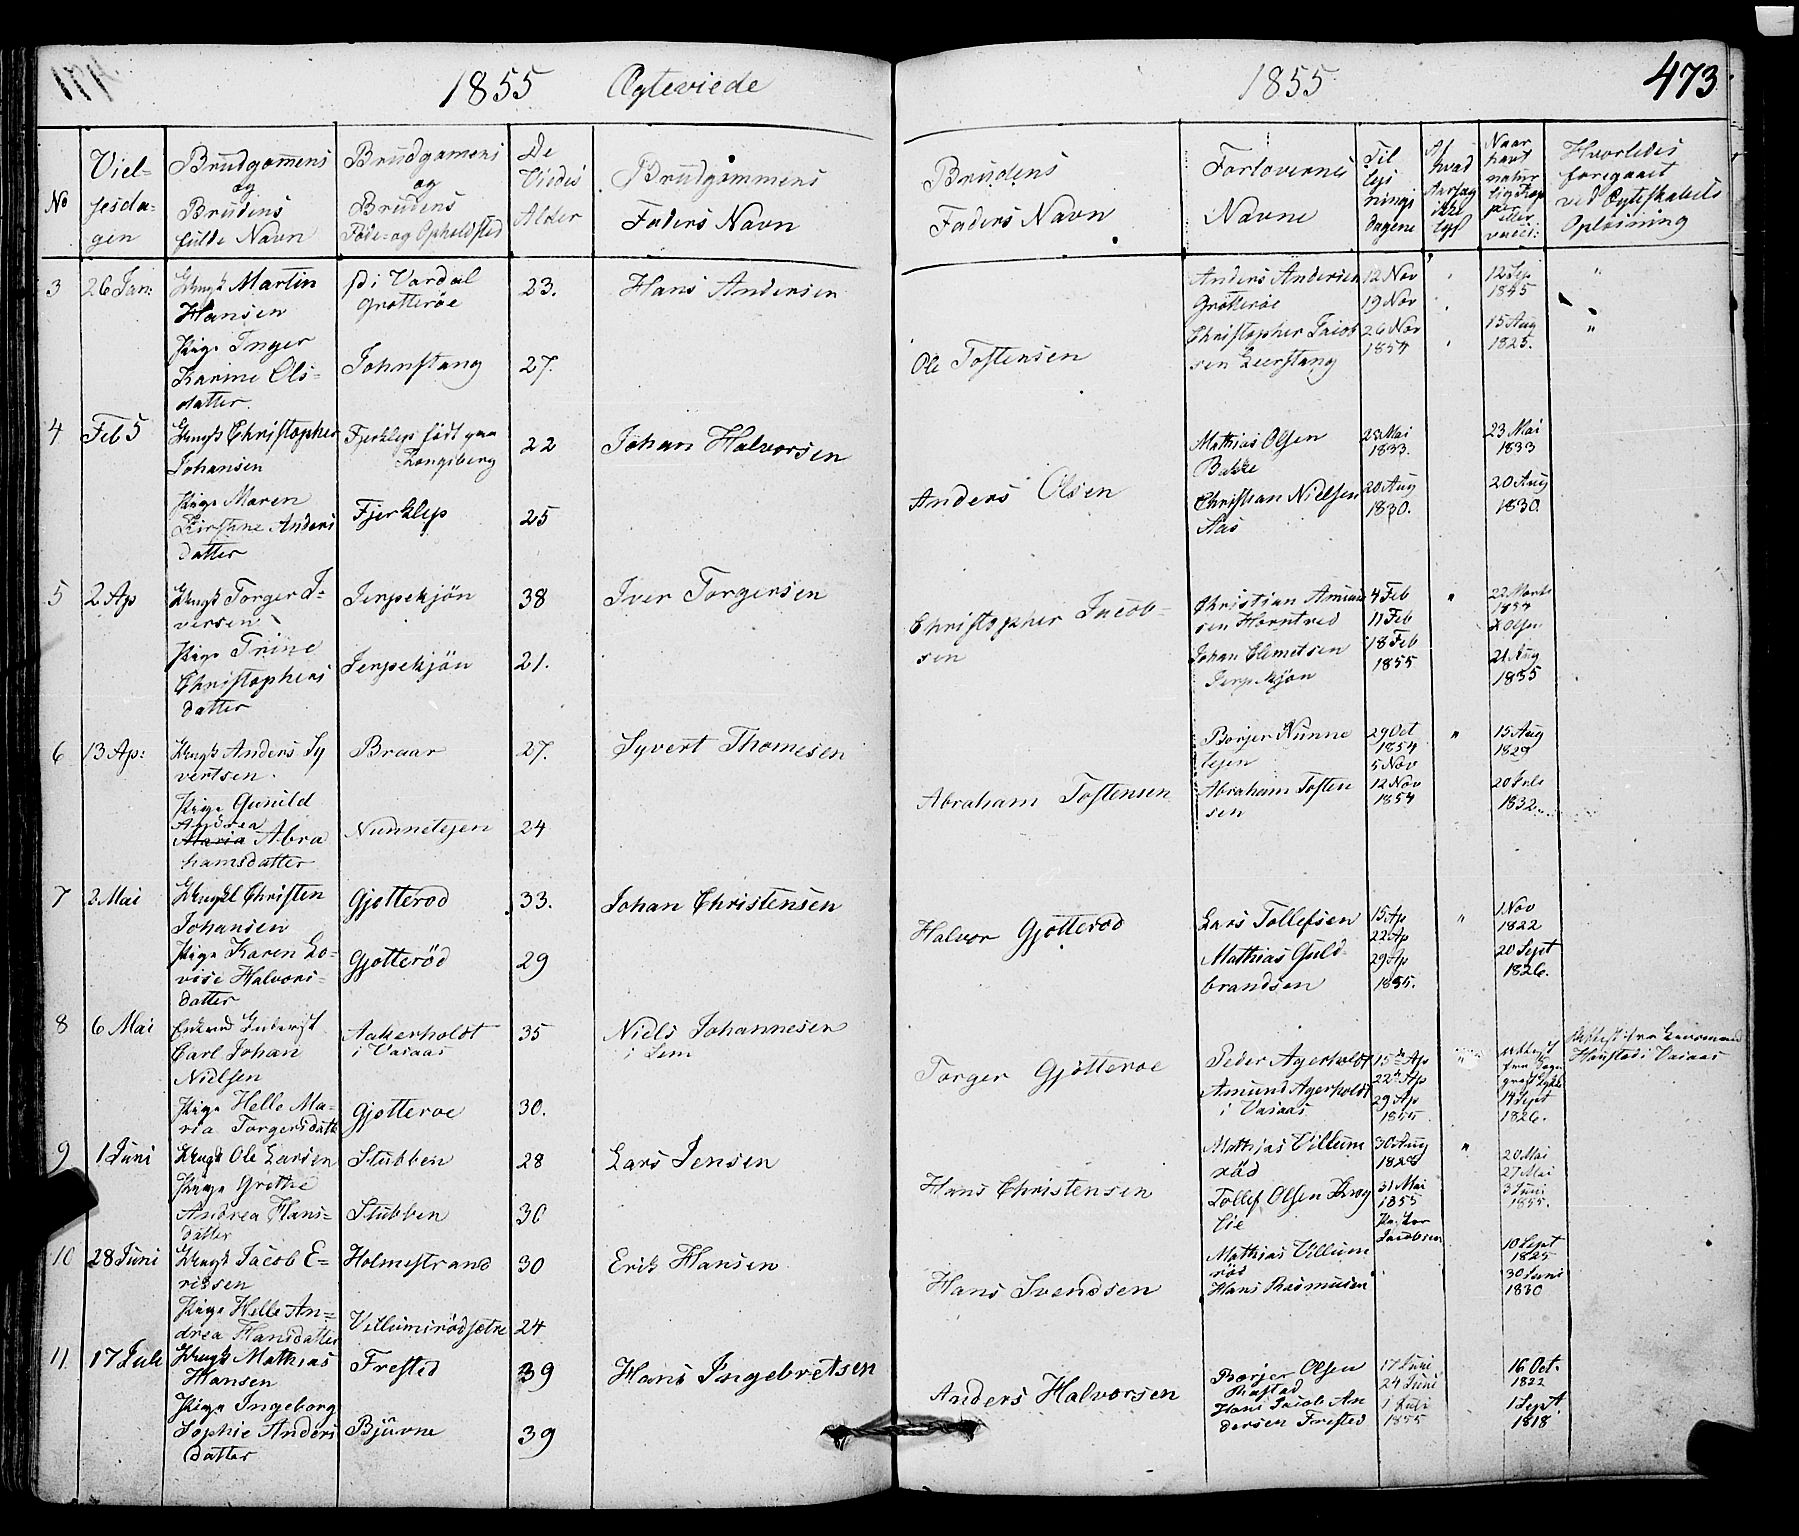 1855 Ægteviede
1855
473
No
Viel-
sesda-
gen
Brudgomens
og
Brudens
fulde Navn
Brudgomens
og
Brudens
Føde- og Opholdsted
De
Viedes
Alder
Brudgommens
Faders Navn
Brudens
Faders Navn
Forlovernes
Navne
Til
lys
nings
dagene
Af
hvad
Aarsag
ikke
lyst
Naar
havt
natur
Hvorledes
foregaaet
ved Ægteskabets
Opløsning
3 26 Jan: Ungk Martin
Hansen
i Vardal
Grøtterøe
23.
Hans Andersen
Anders Andersen
Grøtterøe
12 Nov
19 Nov
12 Sep
1835
Pige Inger
Karine Ols-
datter.
Johnstang
27.
Ole Tostensen
Christopher Jacob
sen Leerstang
26 Nov
1854
15 Aug
1825.
4 Feb 5 Ungk Christopher
Johansen
Fjerklep født paa
Kongsberg
22
Johan Halvorsen
Mathias Olsen
Bakke
23 Mai
1833.
23 Mai
1833
Pige Maren
Kirstine Anders
datter
Fjerklep
25
Anders Olsen
Christian Nielsen
Aas
20 Aug
1830.
20 Aug
1830.
5 2 Ap Ungk Torger I-
versen
Jerpekjøn
38
Iver Torgersen
Christian Amund
sen Horntved
4 Feb
11 Feb
22 Marts
Pige Trine
Christophers
datter
Jerpekjøn
21.
Christopher Jacob-
sen
Johan Clemetsen
Jerpekjøn
18 Feb
1855
21 Aug
1835
6 13 Ap: Ungk Anders Sy
vertsen.
Braar
27.
Syvert Thomesen
Borjer Nunne
tejen
29 Oct
1854
5 Nov
15 Aug
1829
Pige Gunild
Andrea
Maria Abra
hamsdatter
Nunnetejen
24
Abraham Tostensen
Abraham Tosten
sen
12 Nov
1854
20 Juli
1832
7 2 Mai Ungkl Christen
Johansen
Gjøtterød
33.
Johan Christensen
Lars Tollefsen
15 Ap
22 Ap
1 Nov
1822
Pige Karen Lo-
vise Halvors-
datter
Gjøtterød
29
Halvor Gjøtterød
Mathias Guld-
brandsen
29 Ap
1855.
20 Sept
1826.
8 6 Mai
Carl Johan
Nielsen
Aakerholdt
i Vasaas
35
Niels Johannesen
i Sem
Peder Agerholdt
15 Ap
22 Ap
Attest
fra
Attest fra Leensmand
Hanstad i Vasaas
Pige Helle Ma-
ria Torgersdatt
Gjøtterøe
30.
Torger Gjøtterøe
Amund Agerholdt
i Vasaas
29 Ap
1855
14 Sept
1826.
9 1 Juni Ungk Ole Larsen
Stubben
28
Lars Jensen
Mathias Villum
rød
30 Aug
1828
20 Mai
27 Mai
Pige Grethe
Andrea Hans-
datter
Stubben
30
Hans Christensen
Tollef Olsen Brog
lie
31 Mai
1855
Pastor
Jacobsen
3 Juni
1855.
10 28 Juni Ungk Jacob E-
riksen
Holmestrand
30
Erik Hansen
Mathias Villum
rød
10 Sept
1825
Pige Helle An-
drea Hansdatter
Villumsrødsætre
24
Hans Svendsen
Hans Rasmusen
30 Juni
1830
11 17 Juli Ungk Mathias
Hansen
Frested
39
Hans Ingebretsen
Borjer Olsen
Rastad
17 Juni
24 Juni
16 Oct.
1822
Pige Ingeborg
Sophie Anders
datter
Bjùvne
39
Anders Halvorsen
Hans Jacob An
dersen Frested
1 Juli
1855
1 Sept
1818